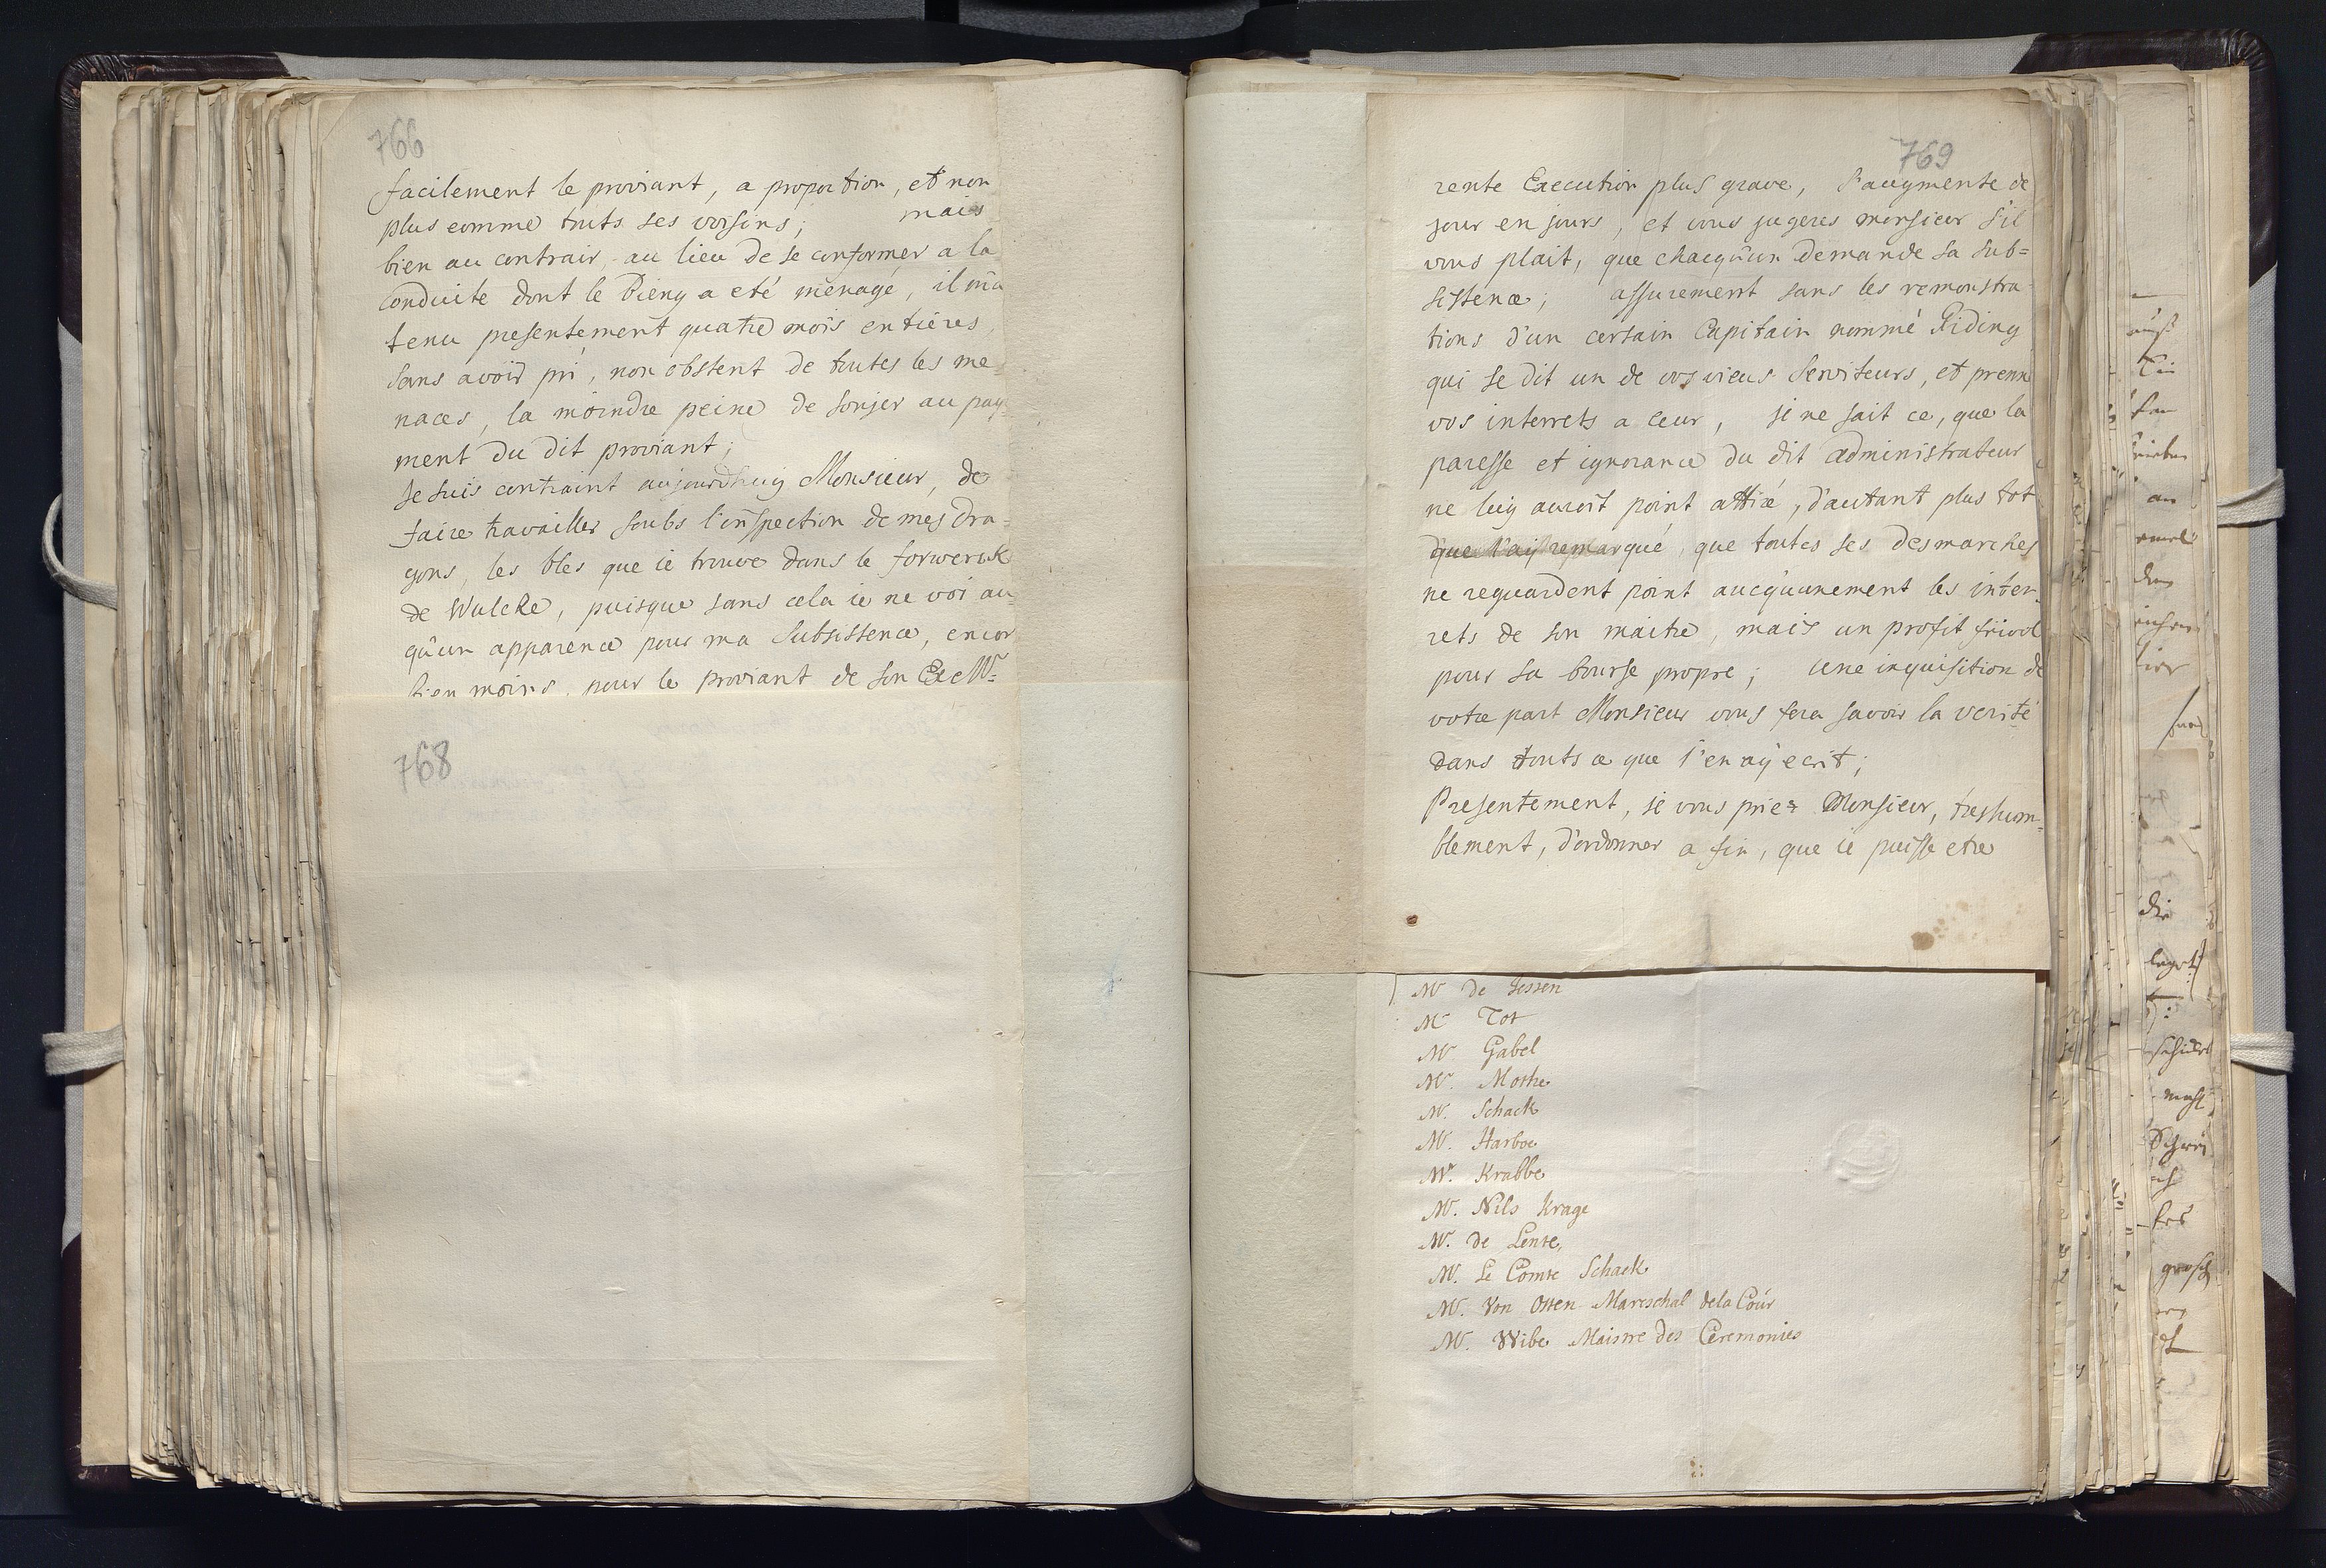 766
facilement le proviant, a proportion, et non
plus comme touts ses voisins; mais
bien au contrair, au lieu de se conformer a la
conduite dont le Bieng a eté menagé, il m'a
tenu presentement quatre mois entières,
sans avoir pri, non obstent de toutes les me
naces, la moindre peine de sonjer au pay-
ment du dit proviant;
Je suis contraint aujourdhuy Monsieur, de
faire travailler soubs l'inspection de mes dra=
gons, les bles que ie trouve dans le forwerck
de Wulcke, puisque sans cela ie ne voi au=
qu'un apparence pour ma subsistence, encor
bien moins, pour le proviant de son Exc
768
769
rente Execution plus grave, s'augmente de
jour en jours, et vous jugeres monsieur s'il
vous plait, que chacqu'un demande sa sub=
sistence; assurement sans les remonstra-
tions d'un certain Capitain nommé Riding
qui se dit un de vos vieus serviteurs, et prenn
vos interrets a ceur, je ne sait ce, que la
paresse et ignorance du dit administrateur
ne luy auroit point attiré, d'autant plus tot
que l'ay remarqué, que toutes ses desmarches
ne reguardent point aucqu'unement les inter-
rets de son maitre, mais un profit frivol
pour sa bourse propre; une inquisition de
votre part Monsieur vous fera savoir la verité
dans touts ce que j'en ay ecrit;
Presentement, je vous prie Monsieur, treshum=
blement, d'ordonner a fin, que ie puisse etre
Mr de Jessen
Mr Tot
Mr Gabel
Mr. Mothe
Mr. Schack
Mr. Harboe
Mr. Krabbe
Mr. Nils Krage
Mr. de Lente,
Mr. Le Comte Schack
Mr. Von Otten Mareschal de la Cour
Mr. Wibe Maistre des Ceremonies
die